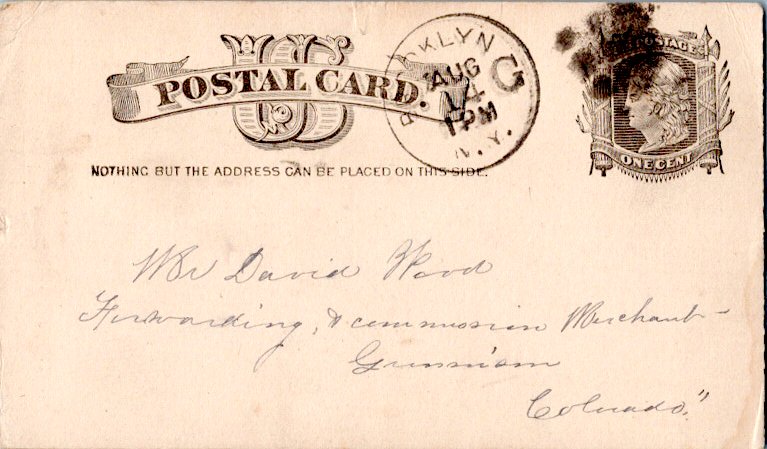 US
POSTAL CARD.
NOTHING BUT THE ADDRESS CAN BE PLACED ON THIS SIDE.
BROOKLYN
AUG
14
1 PM
N.Y.
G
POSTAGE
ONE CENT
Mr David Wood
Forwarding, & commission Merchant
Gunnison
Colorado."